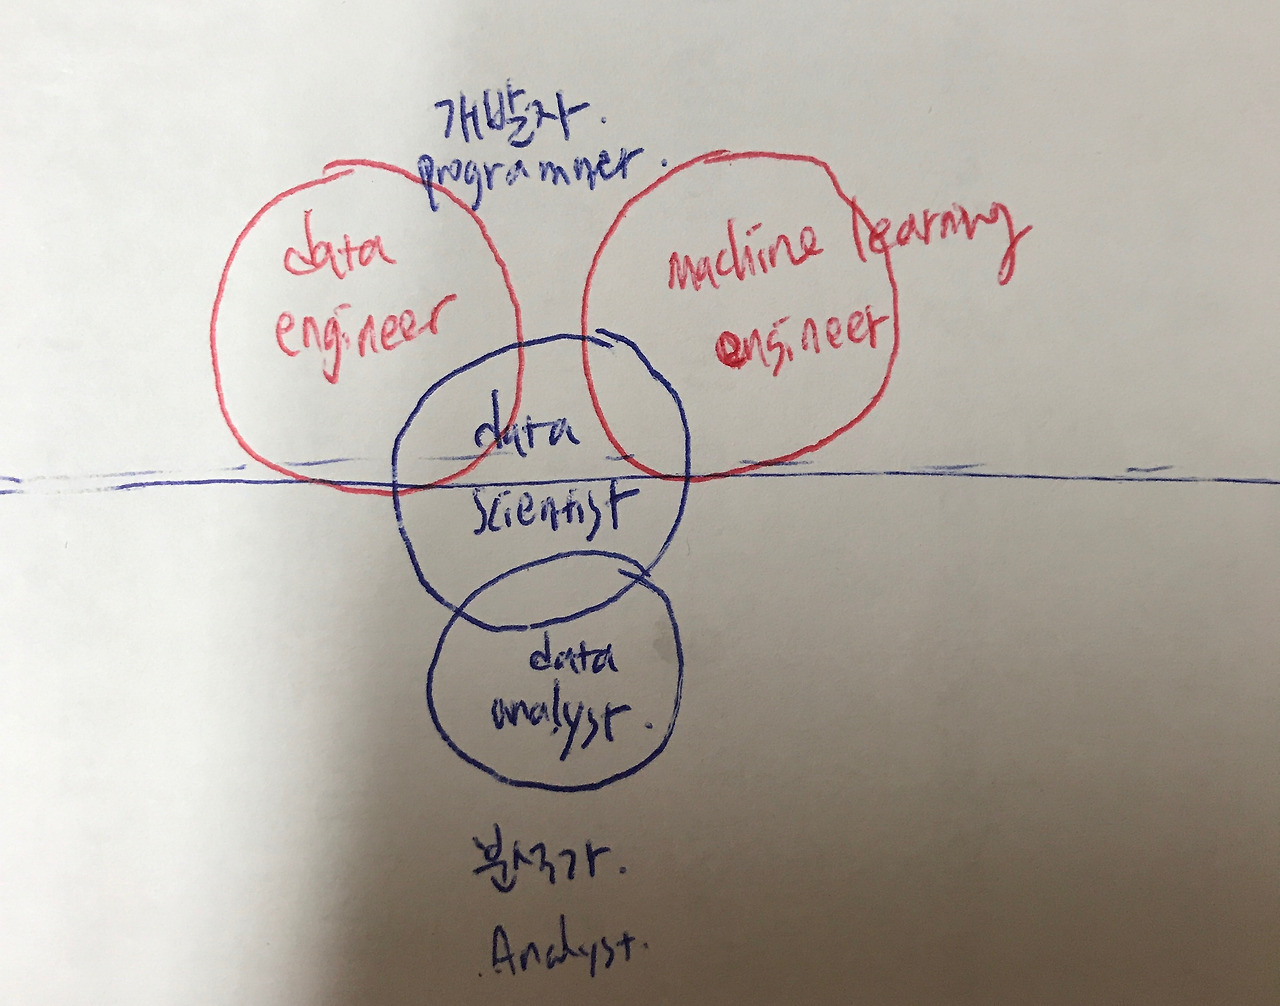 개발자.
programmer.
data
engineer
machine learning
engineer
data
scientist
data
analyst.
분석가.
Analyst.